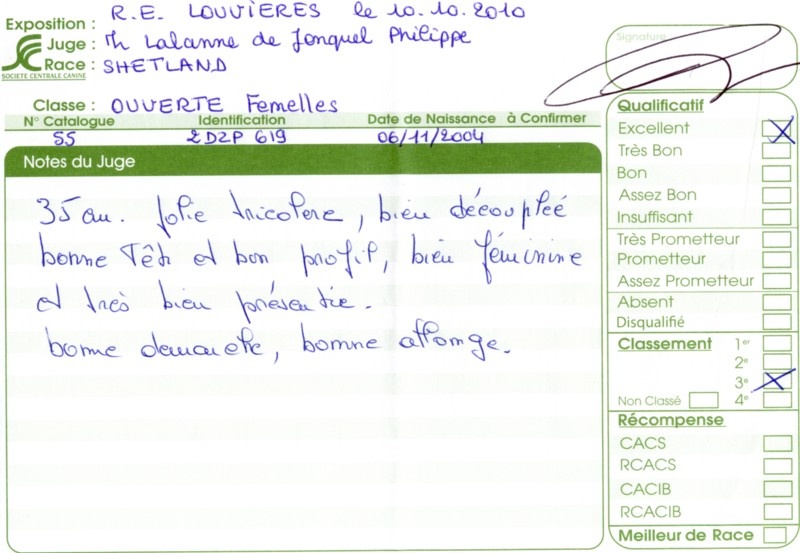 Exposition : R.E. LOUVIERES le 10.10.2010
Juge : Mr Lalanne de Jonquel Philippe
Race : SHETLAND
SOCIETE CENTRALE CANINE
Classe : OUVERTE Femelles
N° Catalogue Identification Date de Naissance à Confirmer
55 2DZP 619 06/11/2004
Notes du Juge
35 cm. Jolie tricolore, bien découplée
bonne Tête et bon profil, bien féminine
et très bien présentée.
bonne démarche, bonne allonge.
Signature
Qualificatif
Excellent
Très Bon
Bon
Assez Bon
Insuffisant
Très Prometteur
Prometteur
Assez Prometteur
Absent
Disqualifié
Classement 1er
2e
3e
Non Classé 4e
Récompense
CACS
RCACS
CACIB
RCACIB
Meilleur de Race